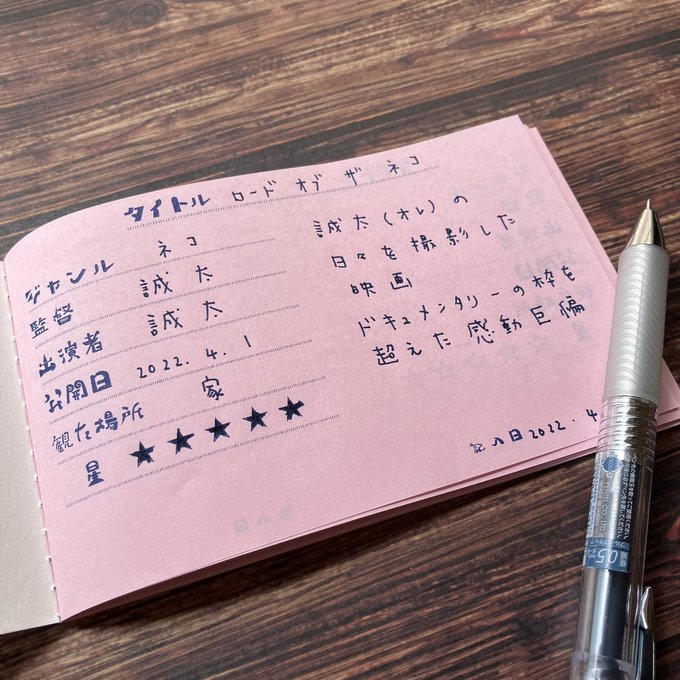 タイトル ロード オブ ザ ネコ
ジャンル ネコ
監督 誠太
出演者 誠太
公開日 2022.4.1
観た場所 家
星 ★★★★★
誠太(オレ)の
日々を撮影した
映画
ドキュメンタリーの枠を
超えた感動巨編
記入日 2022.4
0.5